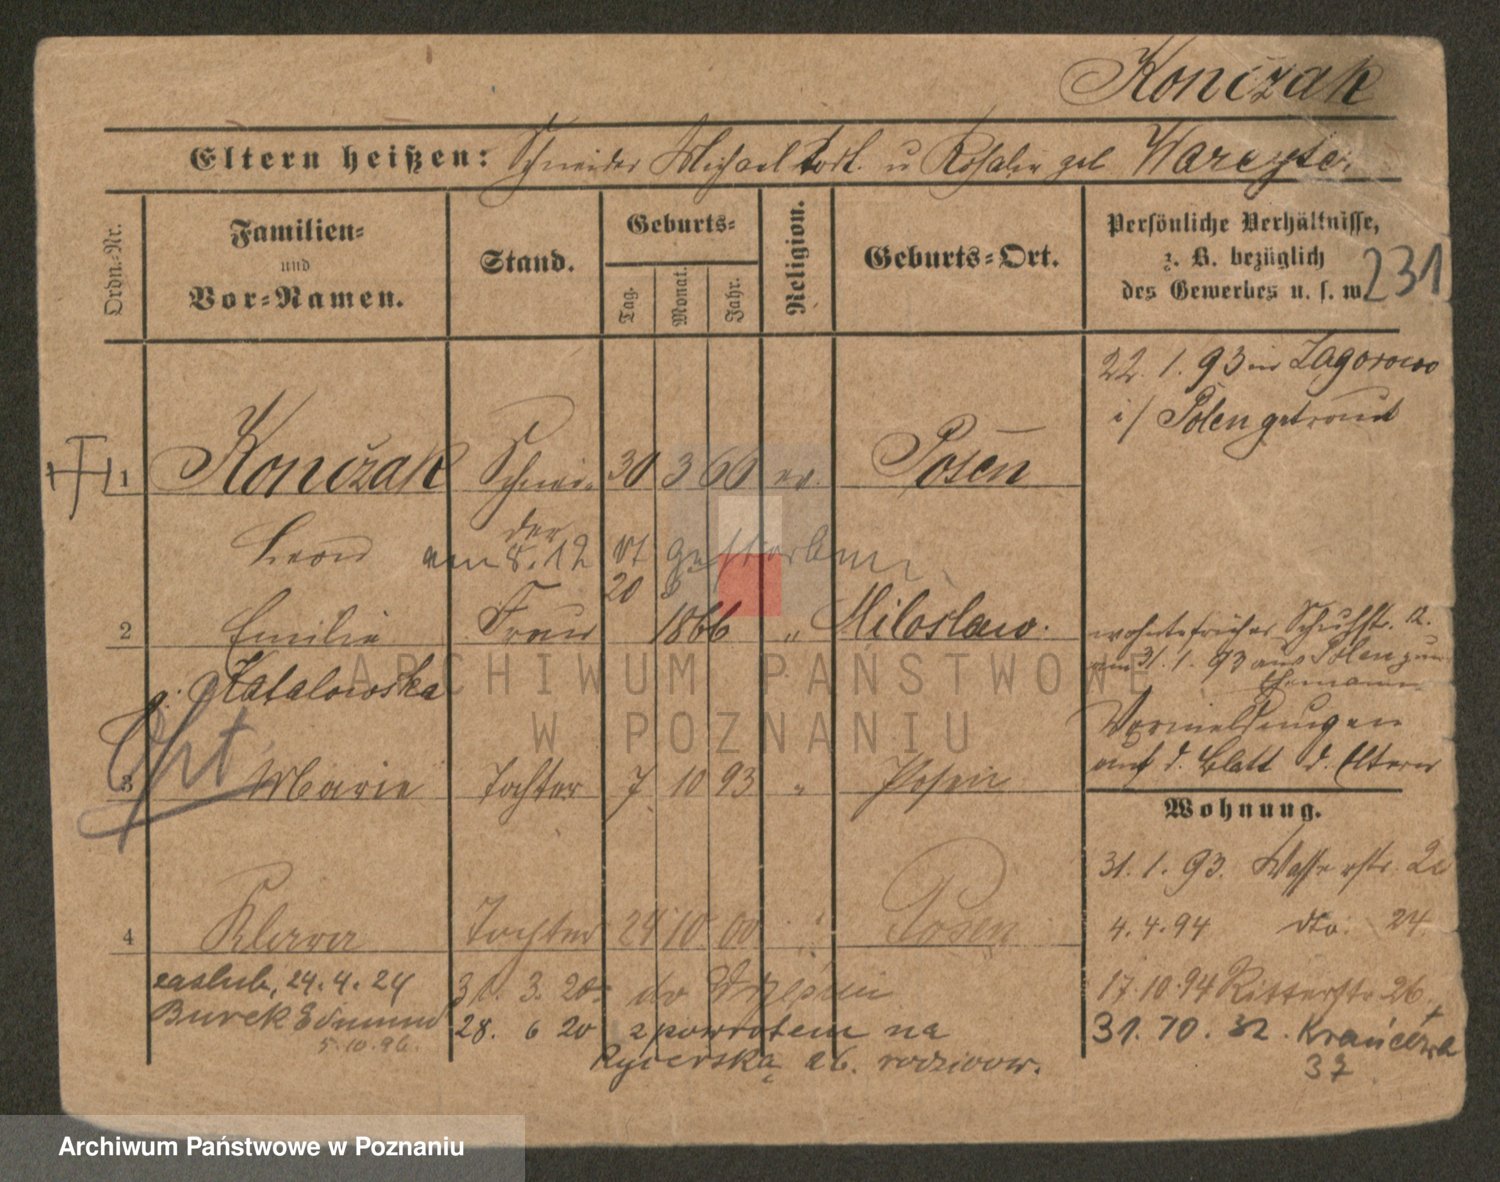 Kończak
Eltern heißen: Schneider Michael u Rosalie geb
Ordn.-Nr.
Familien-
und
Vor-Namen.
Stand.
Geburts-
Tag.
Monat.
Jahr.
Religion.
Geburts-Ort.
Persönliche Verhältnisse,
z. B. bezüglich
des Gewerbes u. s. w.
231
22. 1. 93 in Zagorowo
i/ Polen getraut
1 Kończak Schnei- 30 3 60 Posen
der
Leon am 8. 12 gestorben
20
2 Emilie Frau 1866 " Miloslaw.
wohnte früher Schulstr. 12.
am 31. 1. 93 aus Polen zum
Ehemann
g. Hatalowska
Vormeldungen
auf d. Blatt d. Eltern
3 Marie Tochter 7 10 93 " Posen
Wohnung.
31. 1. 93. Wasserstr. 22
4 Klara Tochter 24 10 00 " Posen
4. 4. 94 dto. 24.
zaślub. 24. 4. 24
Burek Edmund
5. 10. 96.
31. 3. 20 do
28. 6 20 z powrotem na
Rycerską 26. rodziców.
17. 10. 94 Ritterstr 26
31. 10. 32. Krańcowa
37
ARCHIWUM PAŃSTWOWE
W POZNANIU
Archiwum Państwowe w Poznaniu